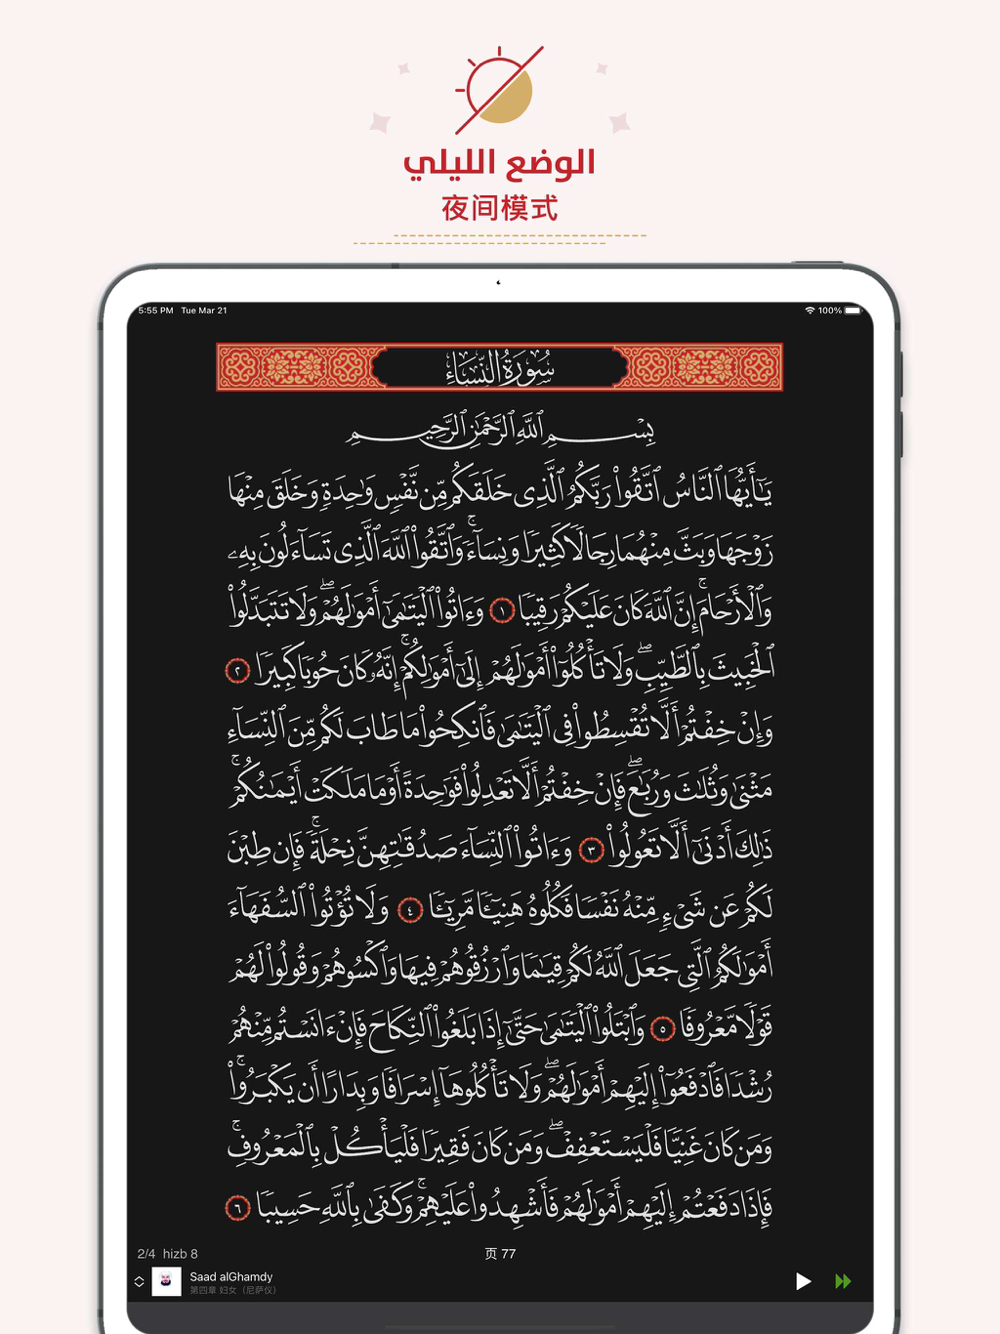 الوضع الليلي
夜间模式
5:55 PM Tue Mar 21
100%
سُورَةُ النِّسَاءِ
بِسْمِ ٱللَّهِ ٱلرَّحْمَٰنِ ٱلرَّحِيمِ
يَٰٓأَيُّهَا ٱلنَّاسُ ٱتَّقُوا۟ رَبَّكُمُ ٱلَّذِى خَلَقَكُم مِّن نَّفْسٍ وَٰحِدَةٍ وَخَلَقَ مِنْهَا
زَوْجَهَا وَبَثَّ مِنْهُمَا رِجَالًا كَثِيرًا وَنِسَآءً ۚ وَٱتَّقُوا۟ ٱللَّهَ ٱلَّذِى تَسَآءَلُونَ بِهِۦ
وَٱلْأَرْحَامَ ۚ إِنَّ ٱللَّهَ كَانَ عَلَيْكُمْ رَقِيبًا ١ وَءَاتُوا۟ ٱلْيَتَٰمَىٰٓ أَمْوَٰلَهُمْ ۖ وَلَا تَتَبَدَّلُوا۟
ٱلْخَبِيثَ بِٱلطَّيِّبِ ۖ وَلَا تَأْكُلُوٓا۟ أَمْوَٰلَهُمْ إِلَىٰٓ أَمْوَٰلِكُمْ ۚ إِنَّهُۥ كَانَ حُوبًا كَبِيرًا ٢
وَإِنْ خِفْتُمْ أَلَّا تُقْسِطُوا۟ فِى ٱلْيَتَٰمَىٰ فَٱنكِحُوا۟ مَا طَابَ لَكُم مِّنَ ٱلنِّسَآءِ
مَثْنَىٰ وَثُلَٰثَ وَرُبَٰعَ ۖ فَإِنْ خِفْتُمْ أَلَّا تَعْدِلُوا۟ فَوَٰحِدَةً أَوْ مَا مَلَكَتْ أَيْمَٰنُكُمْ ۚ
ذَٰلِكَ أَدْنَىٰٓ أَلَّا تَعُولُوا۟ ٣ وَءَاتُوا۟ ٱلنِّسَآءَ صَدُقَٰتِهِنَّ نِحْلَةً ۚ فَإِن طِبْنَ
لَكُمْ عَن شَىْءٍ مِّنْهُ نَفْسًا فَكُلُوهُ هَنِيٓـًٔا مَّرِيٓـًٔا ٤ وَلَا تُؤْتُوا۟ ٱلسُّفَهَآءَ
أَمْوَٰلَكُمُ ٱلَّتِى جَعَلَ ٱللَّهُ لَكُمْ قِيَٰمًا وَٱرْزُقُوهُمْ فِيهَا وَٱكْسُوهُمْ وَقُولُوا۟ لَهُمْ
قَوْلًا مَّعْرُوفًا ٥ وَٱبْتَلُوا۟ ٱلْيَتَٰمَىٰ حَتَّىٰٓ إِذَا بَلَغُوا۟ ٱلنِّكَاحَ فَإِنْ ءَانَسْتُم مِّنْهُمْ
رُشْدًا فَٱدْفَعُوٓا۟ إِلَيْهِمْ أَمْوَٰلَهُمْ ۖ وَلَا تَأْكُلُوهَآ إِسْرَافًا وَبِدَارًا أَن يَكْبَرُوا۟ ۚ
وَمَن كَانَ غَنِيًّا فَلْيَسْتَعْفِفْ ۖ وَمَن كَانَ فَقِيرًا فَلْيَأْكُلْ بِٱلْمَعْرُوفِ ۚ
فَإِذَا دَفَعْتُمْ إِلَيْهِمْ أَمْوَٰلَهُمْ فَأَشْهِدُوا۟ عَلَيْهِمْ ۚ وَكَفَىٰ بِٱللَّهِ حَسِيبًا ٦
2/4 hizb 8
页 77
Saad alGhamdy
第四章 妇女（尼萨仪）